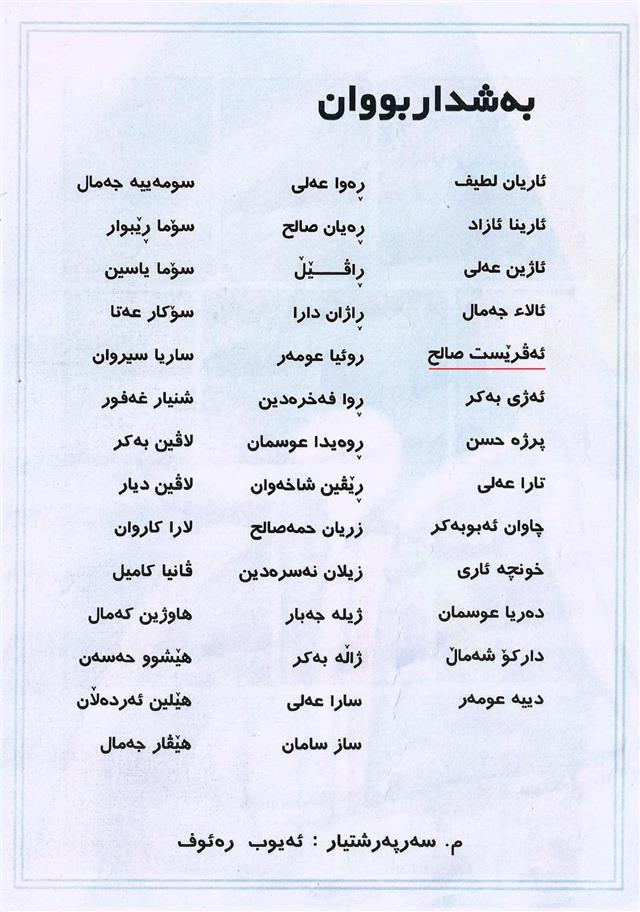 بەشداربووان
ئاریان لطیف
ئارینا ئازاد
ئاژین عەلی
ئالاء جەمال
ئەڤرێست صالح
ئەژی بەکر
پرژە حسن
تارا عەلی
چاوان ئەبوبەکر
خونچە ئاری
دەریا عوسمان
دارکۆ شەماڵ
دییە عومەر
ڕەوا عەلی
ڕەیان صالح
ڕاڤــــێڵ
ڕاژان دارا
روئیا عومەر
ڕوا فەخرەدین
ڕوەیدا عوسمان
ڕێڤین شاخەوان
زریان حمەصالح
زیلان نەسرەدین
ژیلە جەبار
ژاڵە بەکر
سارا عەلی
ساز سامان
سومەییە جەمال
سۆما ڕێبوار
سۆما یاسین
سۆکار عەتا
ساریا سیروان
شنیار غەفور
لاڤین بەکر
لاڤین دیار
لارا کاروان
ڤانیا کامیل
هاوژین کەمال
هێشوو حەسەن
هێلین ئەردەڵان
هێڤار جەمال
م. سەرپەرشتیار : ئەیوب رەئوف